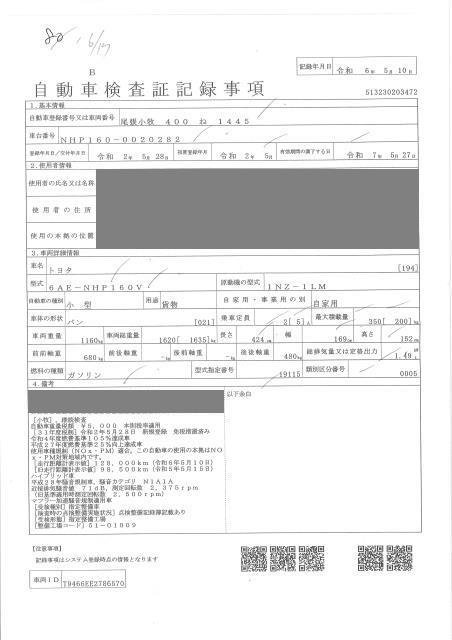 B
記録年月日 令和 6年 5月 10日
自動車検査証記録事項
513230203472
1.基本情報
自動車登録番号又は車両番号 尾張小牧 400 ね 1445
車台番号 NHP160-0020282
登録年月日/交付年月日 令和 2年 5月 28日 初度登録年月 令和 2年 5月 有効期間の満了する日 令和 7年 5月 27日
2.使用者情報
使用者の氏名又は名称
使用者の住所
使用の本拠の位置
3.車両詳細情報
車名 トヨタ [194]
型式 6AE-NHP160V 原動機の型式 1NZ-1LM
自動車の種別 小型 用途 貨物 自家用・事業用の別 自家用
車体の形状 バン [021] 乗車定員 2[ 5]人 最大積載量 350[ 200]kg
車両重量 1160kg 車両総重量 1620[ 1635]kg 長さ 424cm 幅 169cm 高さ 152cm
前前軸重 680kg 前後軸重 -kg 後前軸重 -kg 後後軸重 480kg 総排気量又は定格出力 1.49
燃料の種類 ガソリン 型式指定番号 19115 類別区分番号 0005
4.備考
以下余白
[小牧],継続検査
自動車重量税額 ¥5,000 本則税率適用
令和4年度燃費基準105%達成車
平成27年度燃費基準25%向上達成車
使用車種規制(NOx・PM)適合,この自動車の使用の本拠はNO
x・PM対策地域内です。
[走行距離計表示値]128,000km(令和6年5月10日)
[旧走行距離計表示値]98,500km(令和5年5月15日)
ハイブリッド車
平成28年騒音規制車,騒音カテゴリ N1A1A
近接排気騒音値 71dB,測定回転数 2,375rpm
(旧基準適用時測定回転数 2,500rpm)
マフラー加速騒音規制適用車
[受検種別]指定整備車
[検査時の点検整備実施状況]点検整備記録簿記載あり
[受検形態]指定整備工場
[整備工場コード]51-01009
[注意事項]
記録事項はシステム登録時点の情報となります
車両ID T9466EE2786570